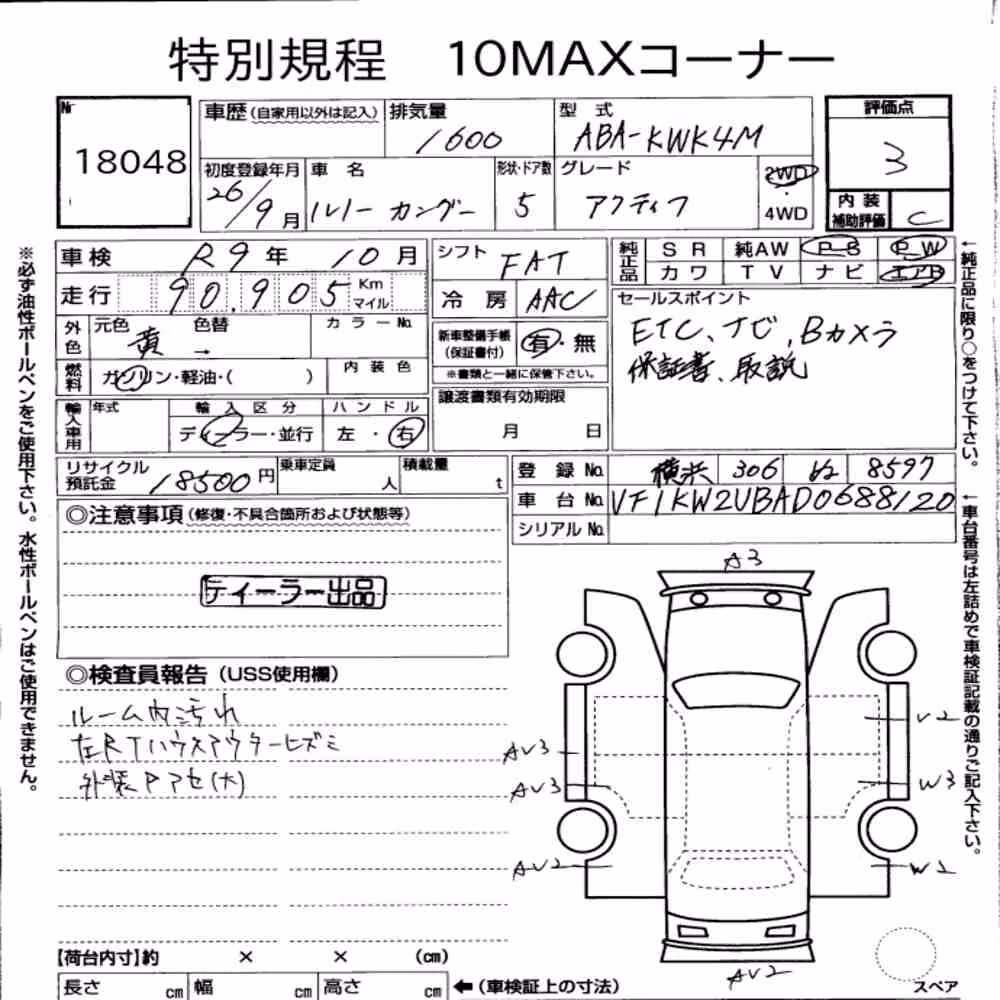 特別規程 10MAXコーナー
Nr 18048
車歴(自家用以外は記入) 排気量 1600 型 式 ABA-KWK4M
評価点 3
初度登録年月 26/9月 車 名 ルノー カングー 形状・ドア数 5 グレード アクティフ 2WD・4WD
内 装 補助評価 C
車検 R9年 10月 シフト FAT
純正品 SR 純AW P-B P-W
カワ TV ナビ エアB
走行 90,905 Km マイル 冷 房 AAC
外色 元色 黄 色替 → カラーNo.
新車整備手帳(保証書付) 有・無
※書類と一緒に保管下さい。
セールスポイント
ETC、ナビ、Bカメラ
保証書、取説
燃料 ガソリン・軽油・( ) 内装色
譲渡書類有効期限 月 日
輸入車用 年式 輸入区分 ハンドル
ディーラー・並行 左・右
リサイクル預託金 18500円 乗車定員 人 積載量 t
登 録 No. 横浜 306 ぬ 8597
車 台 No. VF1KW2UBAD0688120
シリアル No.
◎注意事項(修復・不具合箇所および状態等)
ディーラー出品
◎検査員報告(USS使用欄)
ルーム内汚れ
左RTハウスアウターヒズミ
外装Pアセ(大)
A3
V2
AV3
AV3
W3
AV2
W2
AV2
スペア
【荷台内寸】約 × × (cm)
長さ cm 幅 cm 高さ cm ←(車検証上の寸法)
※必ず油性ボールペンをご使用下さい。水性ボールペンはご使用できません。
←純正品に限り○をつけて下さい。
←車台番号は左詰めで車検証記載の通りご記入下さい。